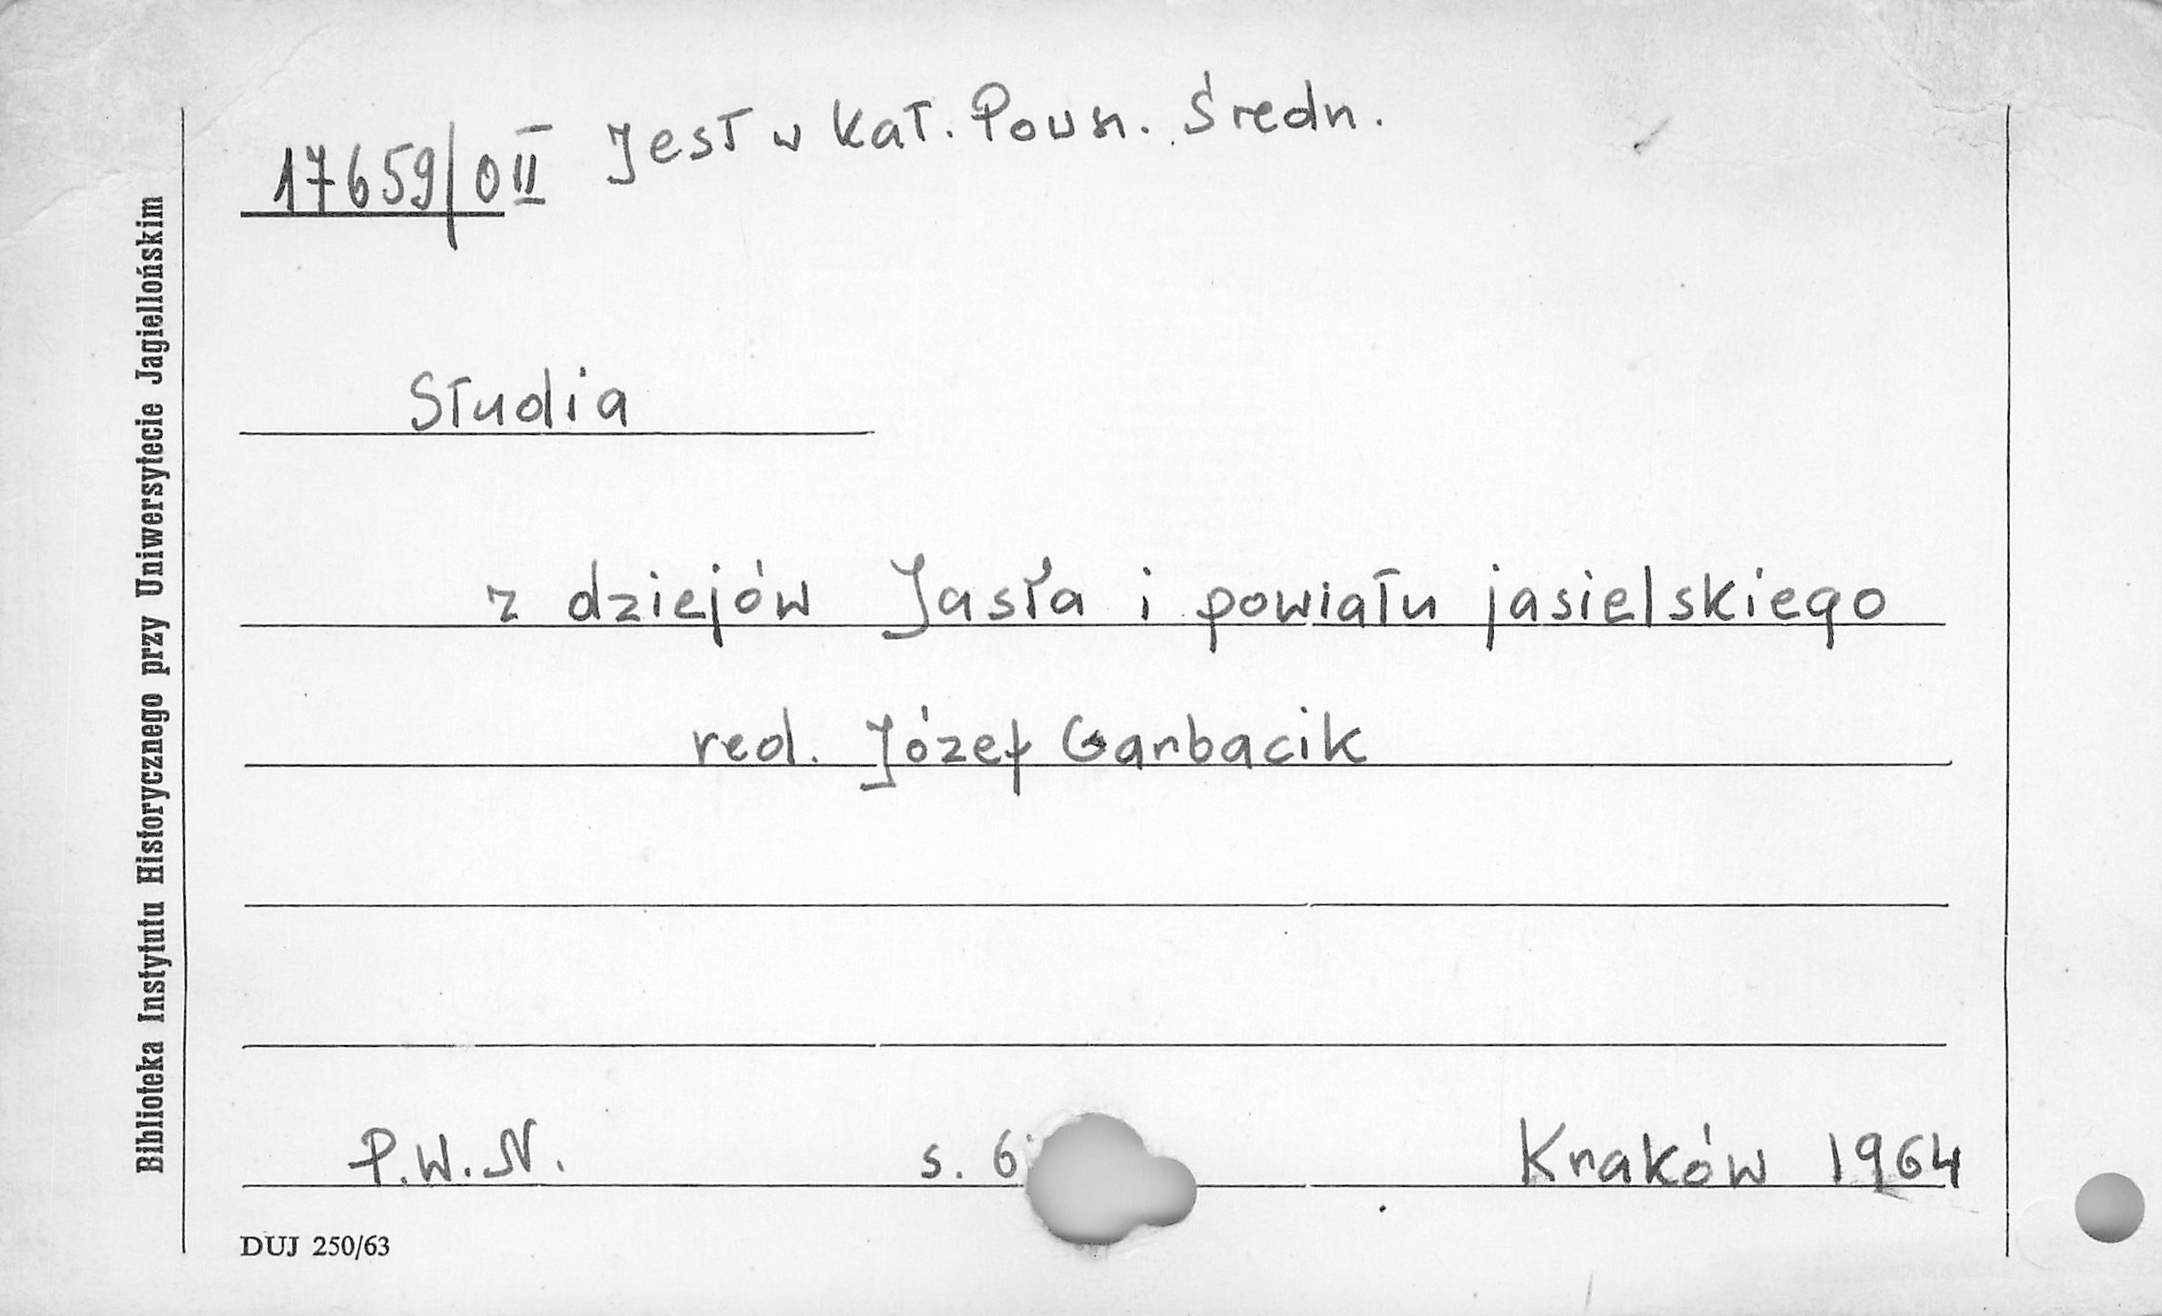 17659/0 II Jest w kat. Pow. Średn.
Studia
z dziejów Jasła i powiatu jasielskiego
red. Józef Garbacik
P.W.N. s. 6 Kraków 1964
DUJ 250/63
Biblioteka Instytutu Historycznego przy Uniwersytecie Jagiellońskim